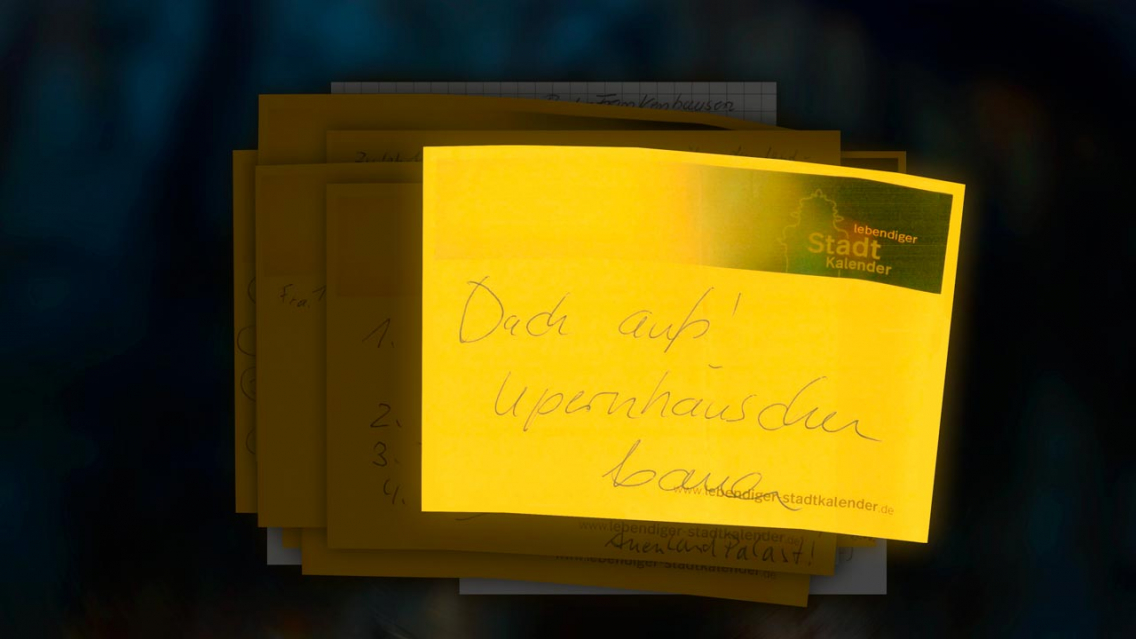 Bad Frankenhausen
lebendiger
Stadt
Kalender
Dach aufs
Opernhäuschen
bauen
www.lebendiger-stadtkalender.de
1.
2.
3.
4.
www.lebendiger-stadtkalender.de
Auenland Palast!
www.lebendiger-stadtkalender.de